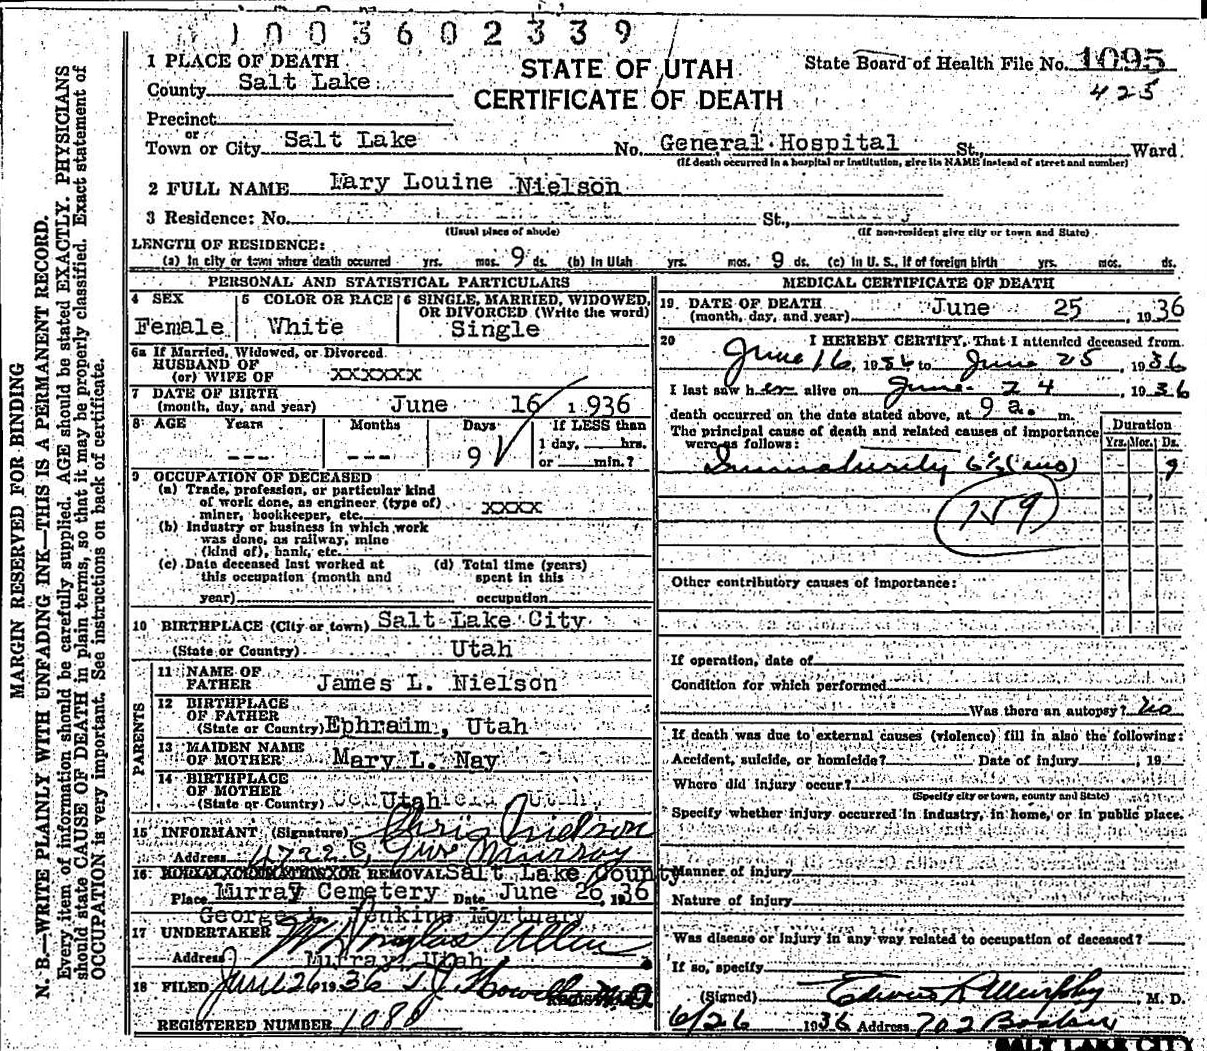 1003602339
STATE OF UTAH
CERTIFICATE OF DEATH
State Board of Health File No. 1095
425
1 PLACE OF DEATH
County Salt Lake
Precinct
or
Town or City Salt Lake No. General Hospital St., Ward
(If death occurred in a hospital or institution, give its NAME instead of street and number)
2 FULL NAME Mary Louine Nielson
3 Residence: No. St.,
(Usual place of abode) (If non-resident give city or town and State)
LENGTH OF RESIDENCE:
(a) In city or town where death occurred yrs. mos. 9 ds. (b) In Utah yrs. mos. 9 ds. (c) In U. S., if of foreign birth yrs. mos. ds.
PERSONAL AND STATISTICAL PARTICULARS
4 SEX
Female
5 COLOR OR RACE
White
6 SINGLE, MARRIED, WIDOWED,
OR DIVORCED (Write the word)
Single
6a If Married, Widowed, or Divorced
HUSBAND OF
(or) WIFE OF XXXXXX
7 DATE OF BIRTH
(month, day, and year) June 16 1936
8 AGE Years Months Days If LESS than
1 day, hrs.
--- --- 9 or min.?
9 OCCUPATION OF DECEASED
(a) Trade, profession, or particular kind
of work done, as engineer (type of)
miner, bookkeeper, etc. XXXX
(b) Industry or business in which work
was done, as railway, mine
(kind of), bank, etc.
(c) Date deceased last worked at
this occupation (month and
year)
(d) Total time (years)
spent in this
occupation
10 BIRTHPLACE (City or town) Salt Lake City
(State or Country) Utah
PARENTS
11 NAME OF
FATHER James L. Nielson
12 BIRTHPLACE
OF FATHER
(State or Country) Ephraim, Utah
13 MAIDEN NAME
OF MOTHER Mary L. Nay
14 BIRTHPLACE
OF MOTHER
(State or Country) Utah
15 INFORMANT (Signature) Chris Nielson
Address 4722 Murray
16 REMOVAL Salt Lake County
Place Murray Cemetery Date June 26, 1936
George Jenkins Mortuary
17 UNDERTAKER W Douglas Allen
Address Murray Utah
18 FILED June 26 1936 T.J. Howells M.D.
REGISTERED NUMBER 1080
MEDICAL CERTIFICATE OF DEATH
19 DATE OF DEATH
(month, day, and year) June 25, 1936
20 I HEREBY CERTIFY, That I attended deceased from
June 16, 1936 to June 25, 1936
I last saw her alive on June 24, 1936
death occurred on the date stated above, at 9 a. m.
The principal cause of death and related causes of importance
were as follows:
Duration
Yrs. Mos. Ds.
Immaturity 6½ (mo) 9
159
Other contributory causes of importance:
If operation, date of
Condition for which performed
Was there an autopsy? no
If death was due to external causes (violence) fill in also the following:
Accident, suicide, or homicide? Date of injury , 19
Where did injury occur?
(Specify city or town, county and State)
Specify whether injury occurred in industry, in home, or in public place.
Manner of injury
Nature of injury
Was disease or injury in any way related to occupation of deceased?
If so, specify
(Signed) Edwin R Murphy, M. D.
6/26 1936 Address 702 Boston
SALT LAKE CITY
MARGIN RESERVED FOR BINDING
N. B.—WRITE PLAINLY WITH UNFADING INK—THIS IS A PERMANENT RECORD.
Every item of information should be carefully supplied. AGE should be stated EXACTLY. PHYSICIANS
should state CAUSE OF DEATH in plain terms, so that it may be properly classified. Exact statement of
OCCUPATION is very important. See instructions on back of certificate.